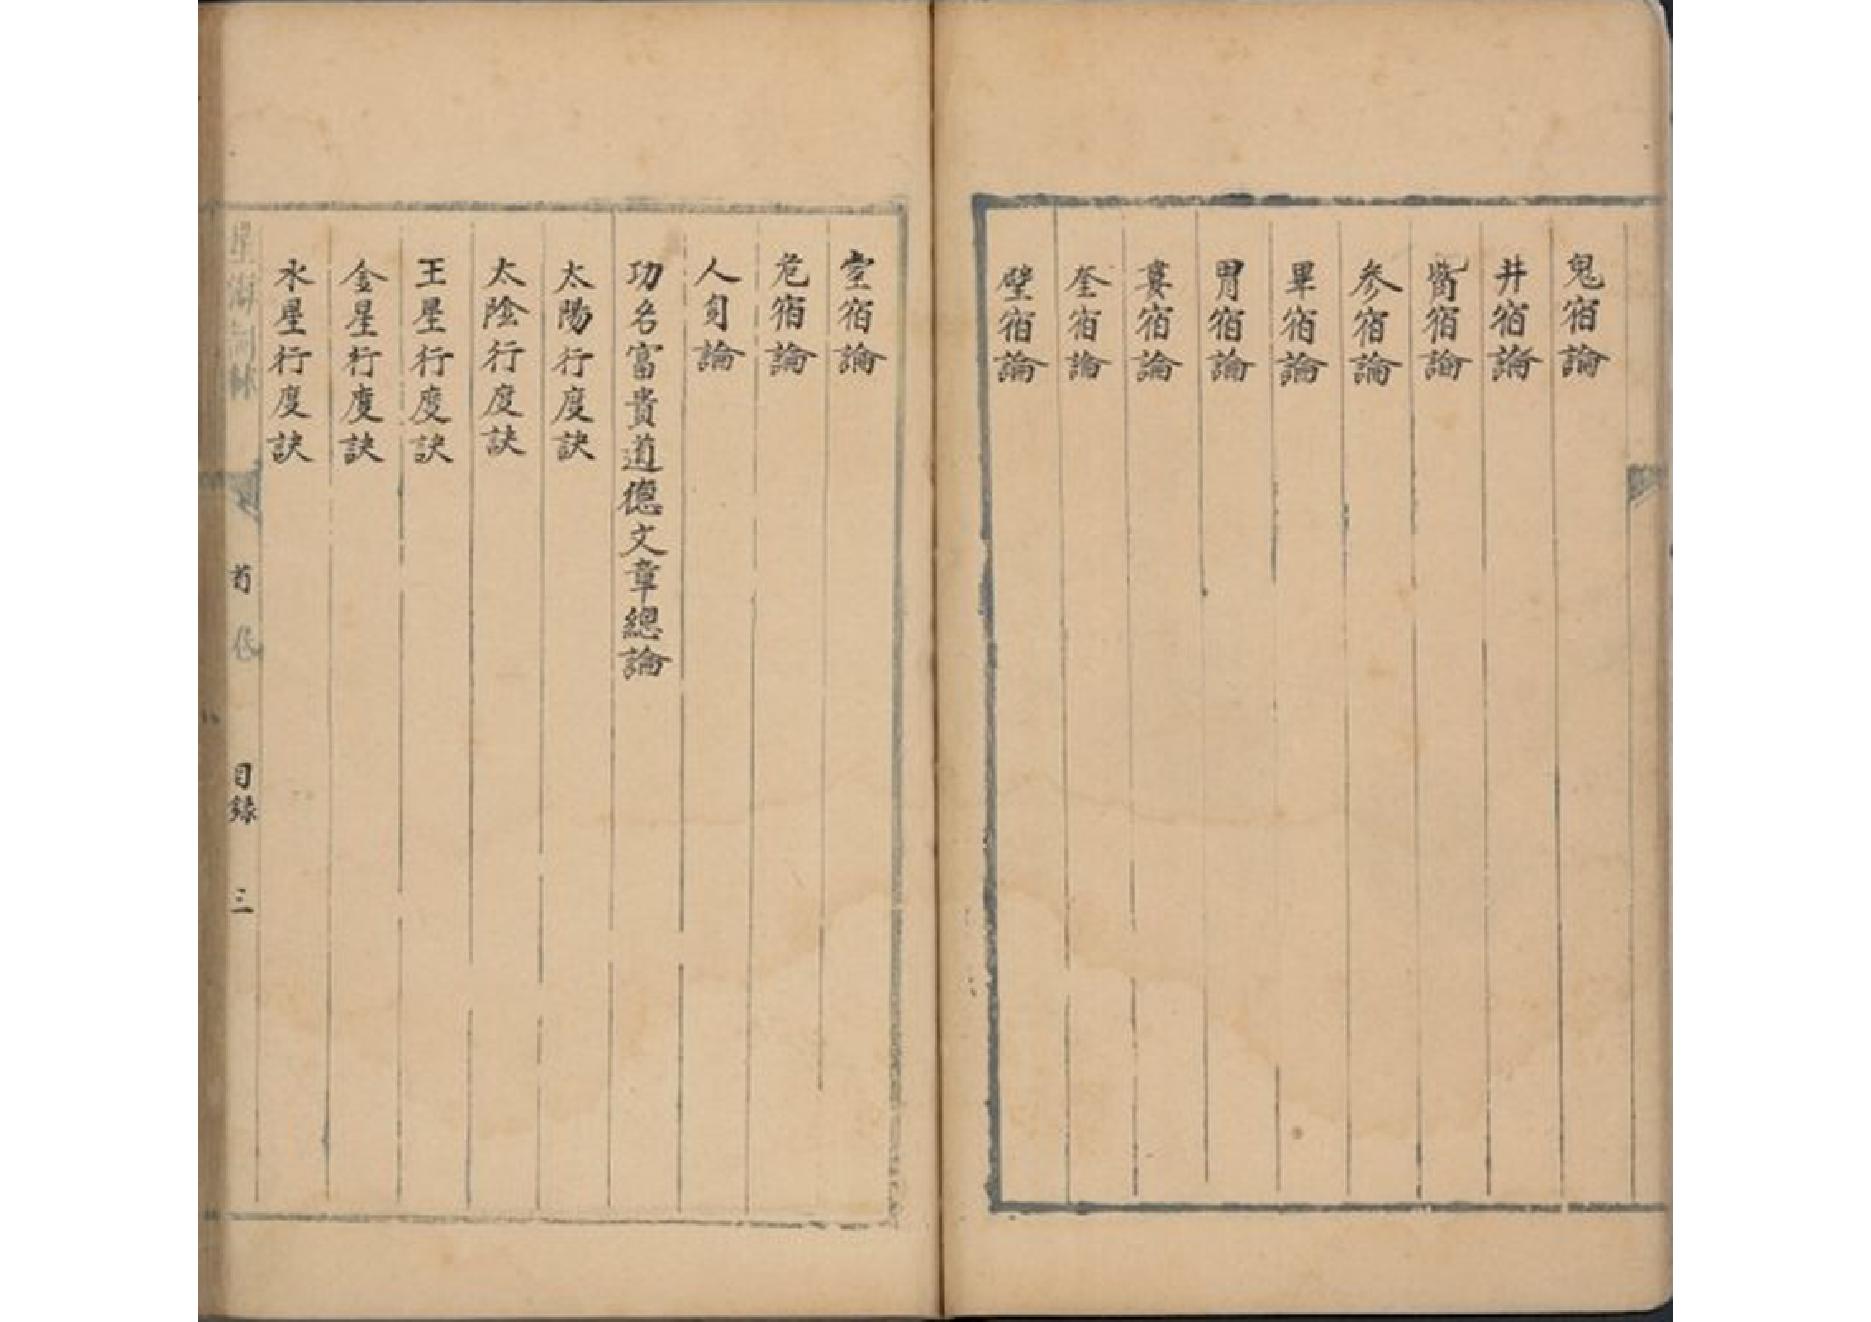 鬼宿論
井宿論
觜宿論
参宿論
畢宿論
胃宿論
婁宿論
奎宿論
壁宿論
室宿論
危宿論
人旬論
功名富貴道德文章總論
太陽行度訣
太陰行度訣
王星行度訣
金星行度訣
水星行度訣
星海詞林
首卷
目錄
三